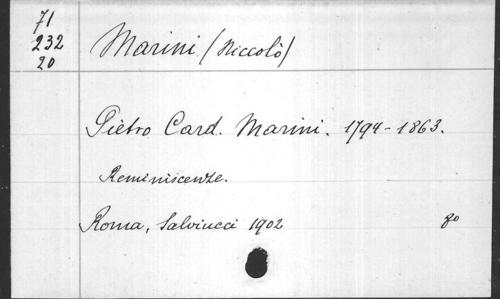 71
232
20
Marini (Niccolò)
Pietro Card. Marini. 1794-1863.
Reminiscenze.
Roma, Salviucci 1902 8º